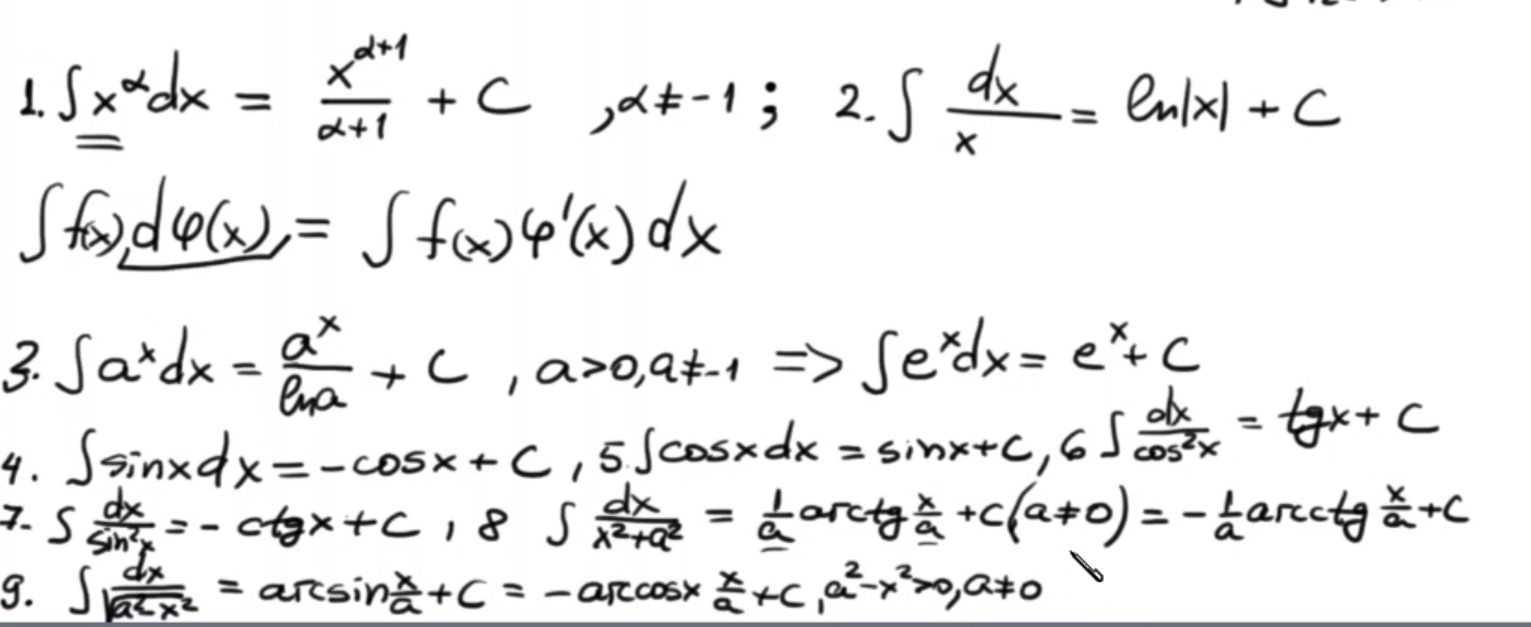 1. ∫ x^α dx = x^(α+1)/(α+1) + C , α ≠ -1 ; 2. ∫ dx/x = ln|x| + C
∫ f(x) dφ(x) = ∫ f(x) φ'(x) dx
3. ∫ a^x dx = a^x/ln a + C , a>0, a ≠ -1 => ∫ e^x dx = e^x + C
4. ∫ sinx dx = -cosx + C , 5. ∫ cosx dx = sinx + C , 6 ∫ dx/cos²x = tgx + C
7. ∫ dx/sin²x = - ctgx + C , 8 ∫ dx/(x²+a²) = 1/a arctg x/a + C (a≠0) = - 1/a arcctg x/a + C
9. ∫ dx/√(a²-x²) = arcsin x/a + C = - arccosx x/a + C , a²-x²>0, a≠0